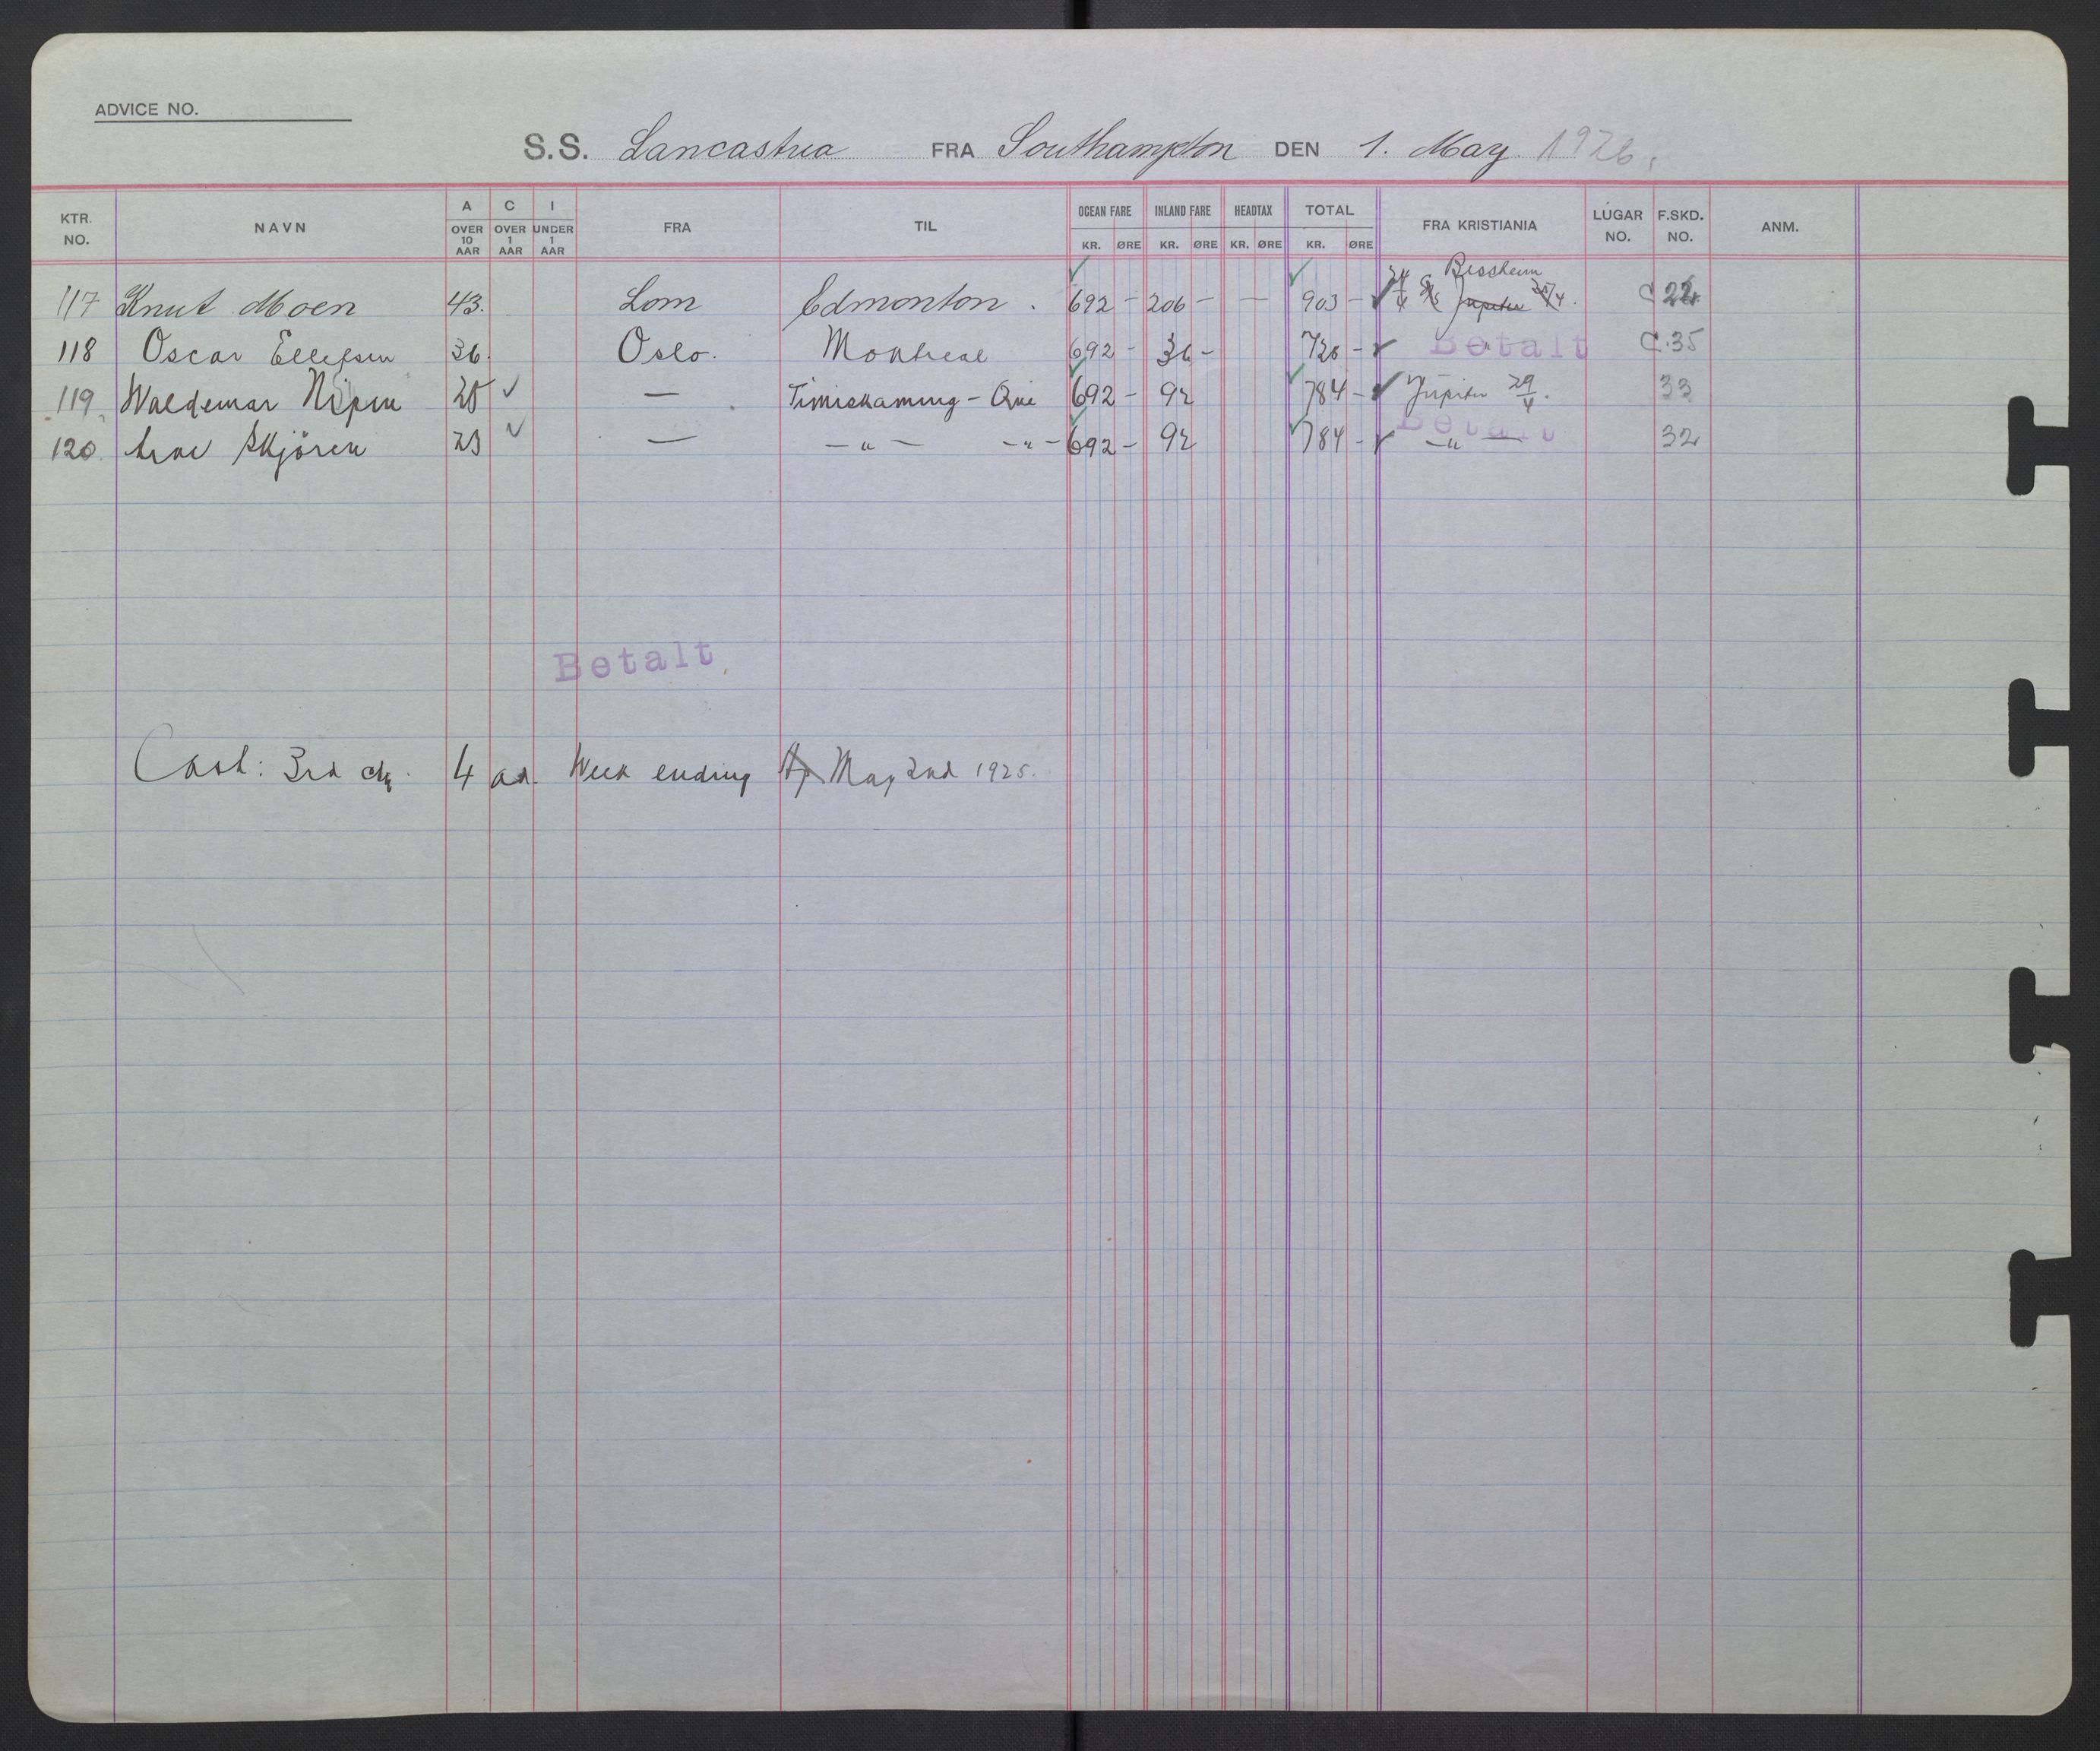 ADVICE NO.
S.S. Lancastria FRA Southampton DEN 1. May. 1926.
KTR. NO. NAVN A OVER 10 AAR C OVER 1 AAR I UNDER 1 AAR FRA TIL OCEAN FARE KR. ØRE INLAND FARE KR. ØRE HEADTAX KR. ØRE TOTAL KR. ØRE FRA KRISTIANIA LUGAR NO. F.SKD. NO. ANM.
Bessheim
117 Knut Moen 43. Lom Edmonton. 692 - 206 - - 903 - ✓ Jupiter C 22
118 Oscar Ellefsen 36. Oslo. Montreal 692 - 36 - 728 - ✓ Betalt C.35
119 Waldemar Nipen 25 ✓ — Timiskaming - Que 692 - 92 784 - ✓ Jupiter 29/4. 33
120 Arne Skjören 23 ✓ — -"- -"- 692 - 92 784 - ✓ Betalt -"- 32
Betalt
Cash: 3rd cl. 4 ad. Week ending Ap May 2nd 1925.